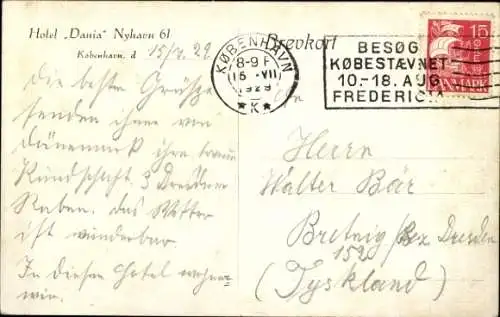 Hotel „Dania" Nyhavn 61
København, d. 15/7. 29
Brevkort
KØBENHAVN
8-9 F
16 -VII
1929
★ K ★
BESØG
KØBESTÆVNET
10.-18. AUG.
FREDERICIA
15
DANMARK
Die besten Grüße
senden ihnen von
Dänemark ihre
Kundschaft 3 Dresdner
Raben. das Wetter
ist wunderbar.
In diesem Hotel wohnen
wir.
Herrn
Walter Bär
Bretnig Bez. Dresden
152
(Tyskland)